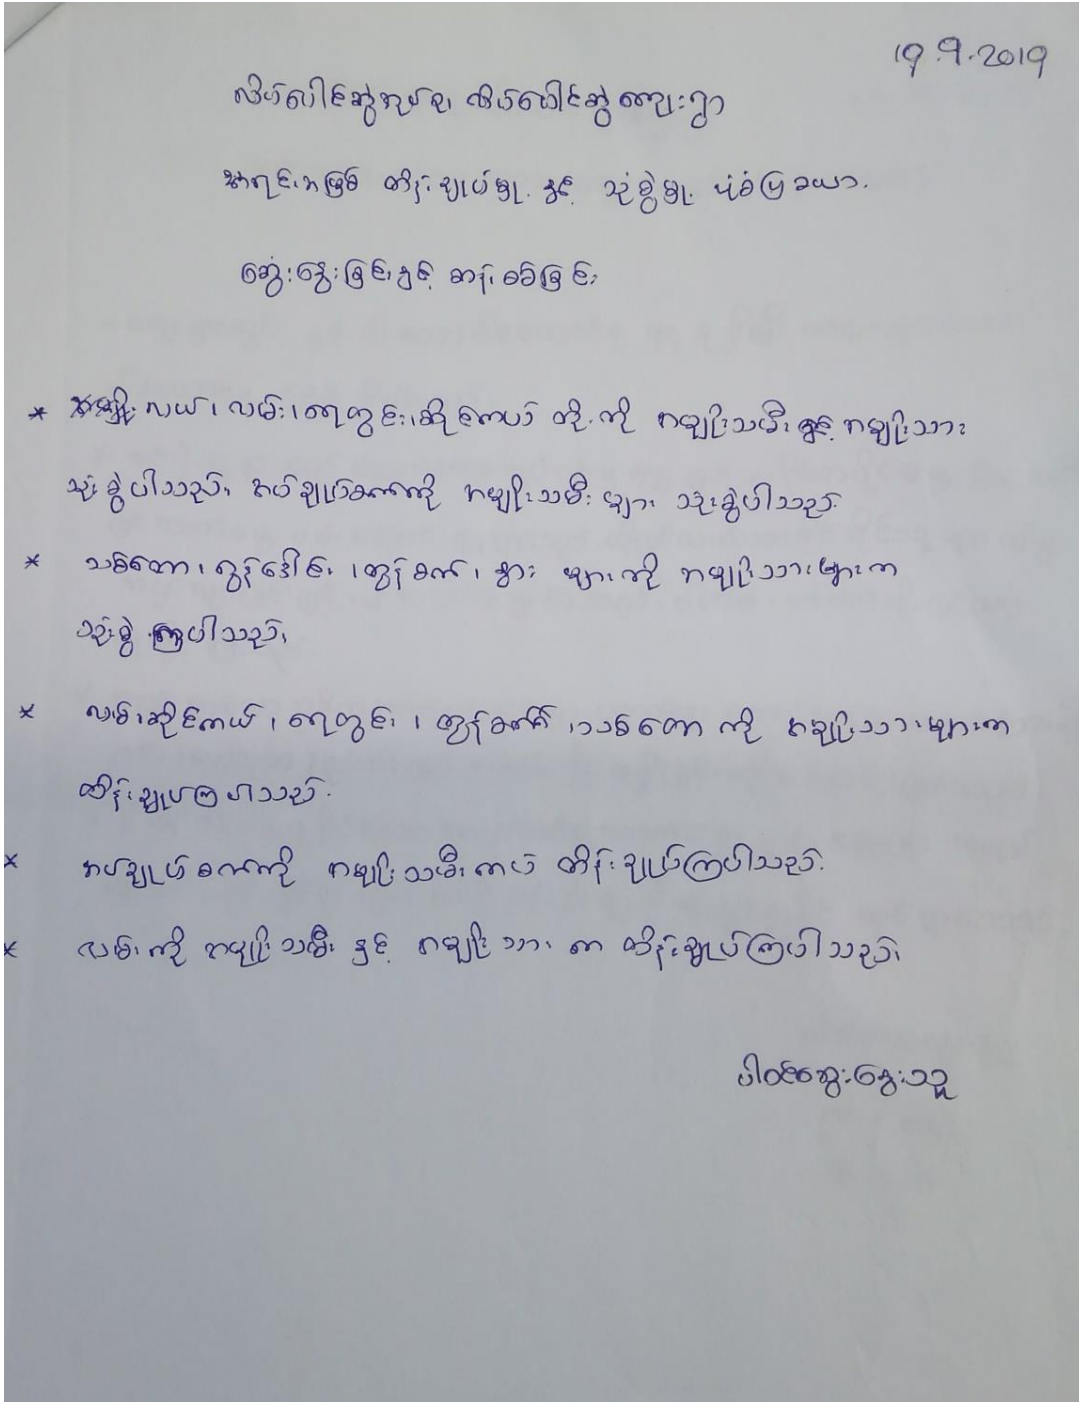 19.9.2019
လိပ်ပေါင်ဆွဲအုပ်စု၊ လိပ်ပေါင်ဆွဲကျေးရွာ
အရင်းအမြစ် ထိန်းချုပ်မှု နှင့် သုံးစွဲမှု ပုံစံပြဇယား.
ဆွေးနွေးခြင်းနှင့် ဆန်းစစ်ခြင်း
* လယ်၊ လမ်း၊ ရေတွင်း၊ ဆိုင်ကယ် တို့ကို အမျိုးသမီး နှင့် အမျိုးသား
သုံးစွဲပါသည်၊ အပ်ချုပ်စက်ကို အမျိုးသမီး များ သုံးစွဲပါသည်
* သစ်တော၊ ထွန်ဒေါင်း ၊ ထွန်စက်၊ နွား များကို အမျိုးသားများက
သုံးစွဲ ကြပါသည်၊
* လမ်း၊ ဆိုင်ကယ်၊ ရေတွင်း ၊ ထွန်စက် ၊ သစ်တော ကို အမျိုးသားများက
ထိန်းချုပ်ကြပါသည်.
* အပ်ချုပ်စက်ကို အမျိုးသမီးကပဲ ထိန်းချုပ်ကြပါသည်.
* လမ်းကို အမျိုးသမီး နှင့် အမျိုးသား က ထိန်းချုပ်ကြပါသည်၊
ပါဝင်ဆွေးနွေးသူ